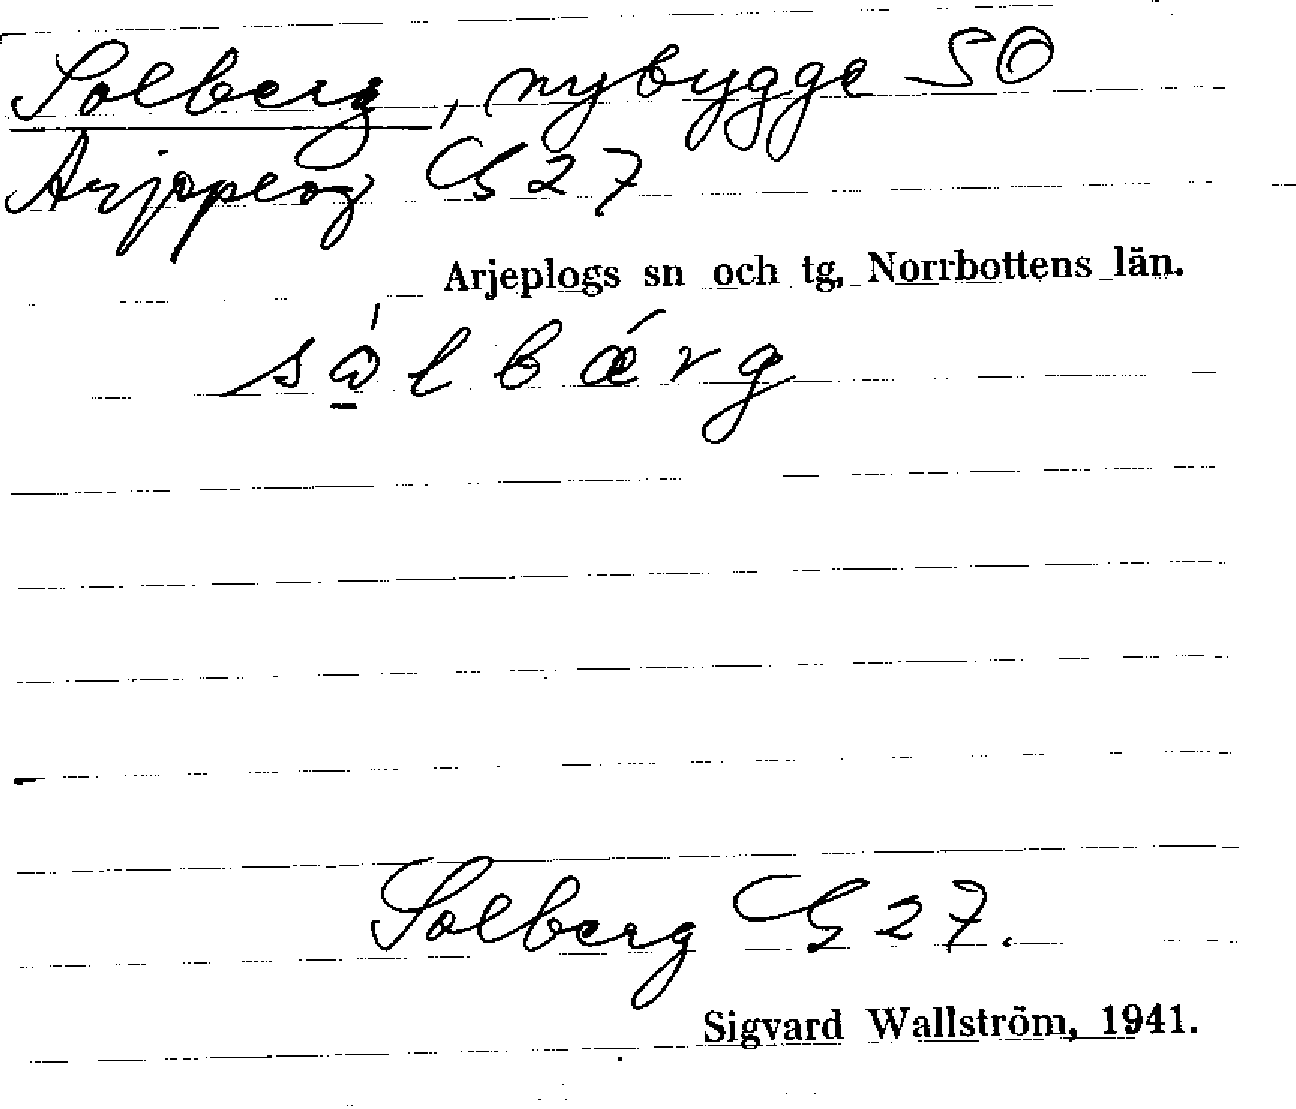 Solberg, nybygge SO
Arjeplog G 27
Arjeplogs sn och tg, Norrbottens län.
sώ̱lbǽrg
Solberg G 27.
Sigvard Wallström, 1941.